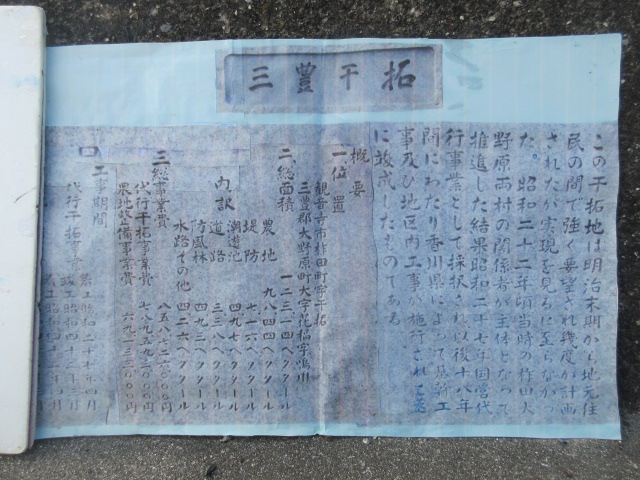 三豊干拓
この干拓地は明治末期から地元住
民の間で強く要望され幾度か計画
されたが実現を見るに至らなかっ
た。昭和二十二年頃当時の柞田大
野原両村の関係者が主体となって
推進した結果昭和二十七年国営代
行事業として採択され以後十八年
間にわたり香川県によって
事及び地区内工事が施行され
に竣成したものである
概要
一、位置
観音寺市柞田町字干拓
三豊郡大野原町大字花稲字
二、総面積 一二三一四ヘクタール
内訳
農地 九八四四ヘクタール
堤防 七一六ヘクタール
潮遊池 四九七ヘクタール
道路 三三八ヘクタール
防風林 四九三ヘクタール
水路その他 四二六ヘクタール
三、総事業費 八五八七二六〇〇〇円
代行干拓事業費
農地整備事業費
四 工事期間
代行干拓事業
昭和二十七年四月